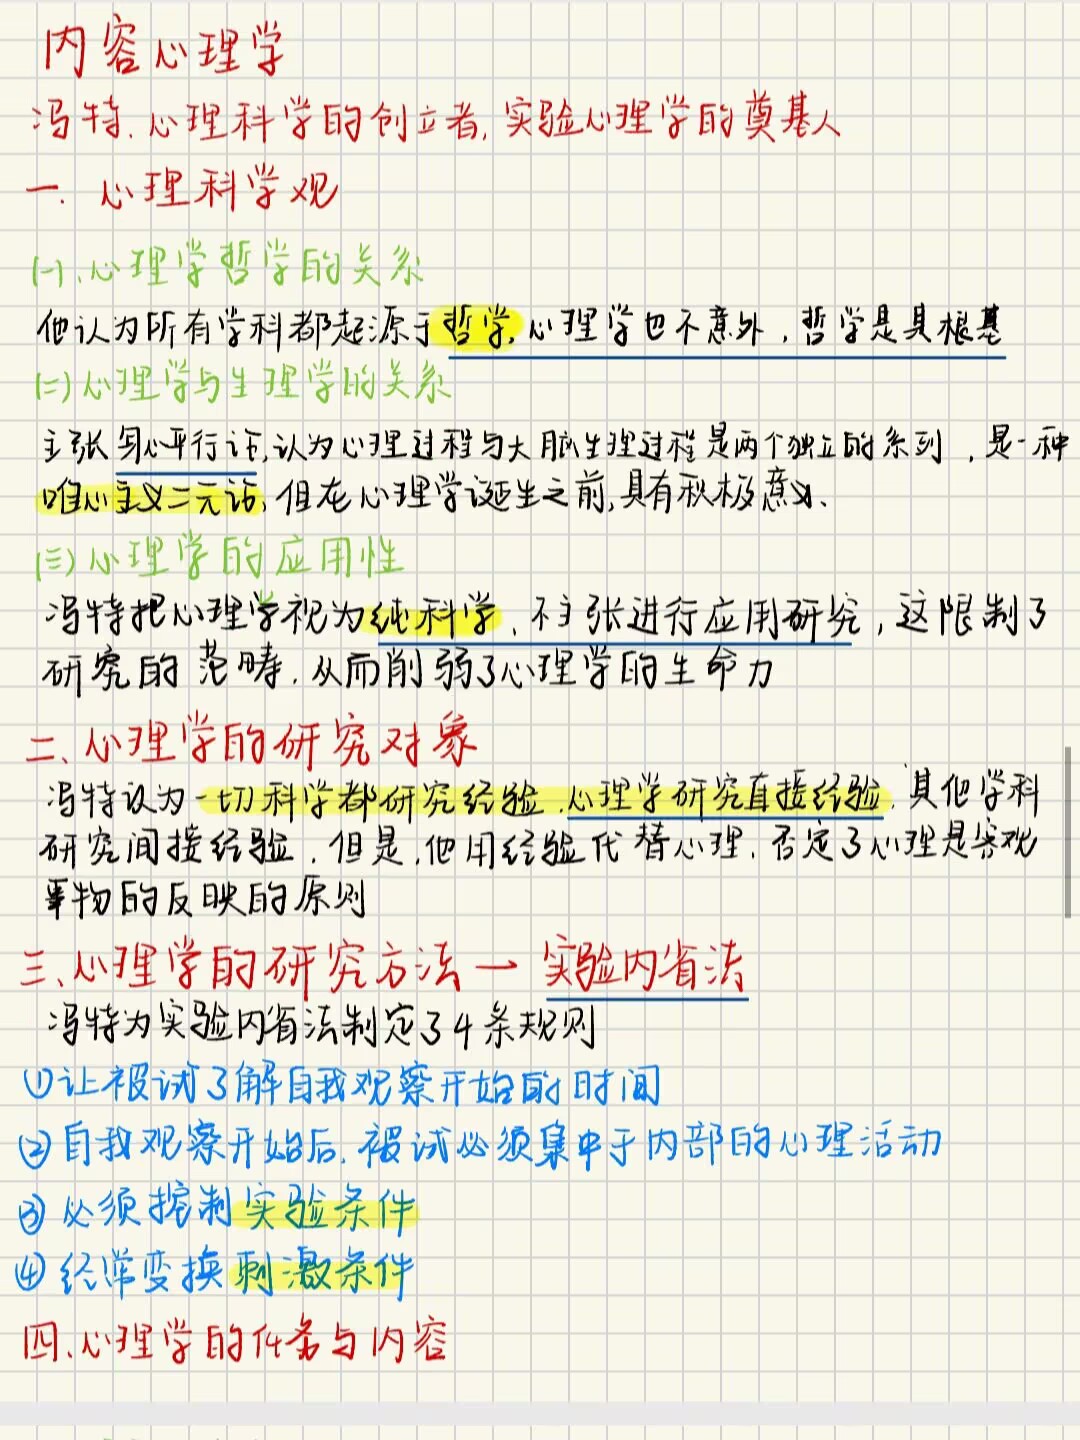 内容心理学
冯特.心理科学的创立者,实验心理学的奠基人
一.心理科学观
(一).心理学哲学的关系
他认为所有学科都起源于哲学,心理学也不意外,哲学是其根基
(二)心理学与生理学的关系
主张身心平行论,认为心理过程与大脑生理过程是两个独立的系列,是一种
唯心主义二元论,但在心理学诞生之前,具有积极意义、
(三)心理学的应用性
冯特把心理学视为纯科学、不主张进行应用研究,这限制了
研究的范畴.从而削弱了心理学的生命力
二、心理学的研究对象
冯特认为一切科学都研究经验.心理学研究直接经验.其他学科
研究间接经验.但是,他用经验代替心理.否定了心理是客观
事物的反映的原则
三、心理学的研究方法一实验内省法
冯特为实验内省法制定了4条规则
①让被试了解自我观察开始的时间
②自我观察开始后.被试必须集中于内部的心理活动
③必须控制实验条件
④经常变换刺激条件
四.心理学的任务与内容